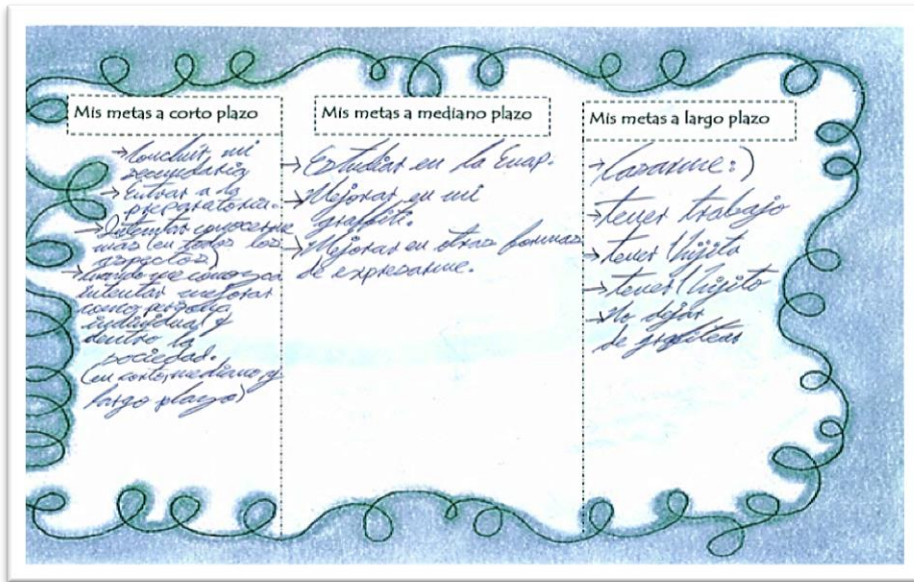 Mis metas a corto plazo
→Concluir mi
secundaria
→Entrar a la
preparatoria.
→Intentar conocerme
más (en todos los
aspectos)
→Cuando me conozca
intentar mejorar
como persona
individual y
dentro la
sociedad.
(en corto, mediano y
largo plazo)
Mis metas a mediano plazo
→Estudiar en la Enap.
→Mejorar en mi
graffiti.
→Mejorar en otras formas
de expresarme.
Mis metas a largo plazo
→Casarme :)
→tener trabajo
→tener 1 hijita
→tener 1 hijito
→No dejar
de grafitear